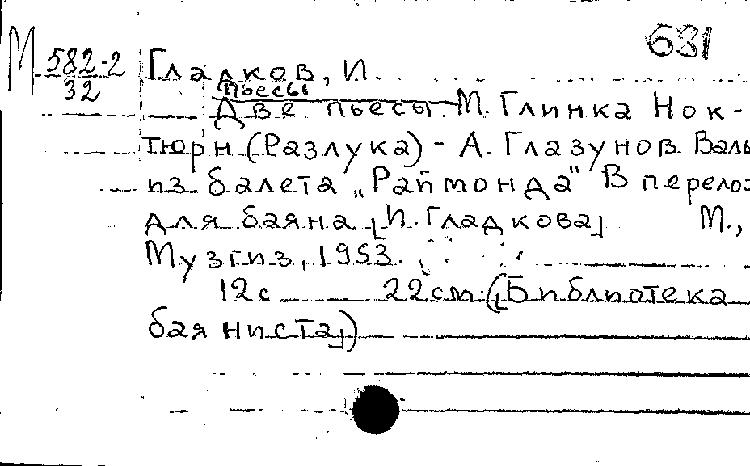 681
М 582-2
32
Гладков, И.
Пьесы
Две пьесы М. Глинка Нок-
тюрн (Разлука) - А. Глазунов. Валь
из балета „Раймонда" В перелож
для баяна [И. Гладкова] М.,
Музгиз, 1953.
12с 22см ([Библиотека
баяниста])